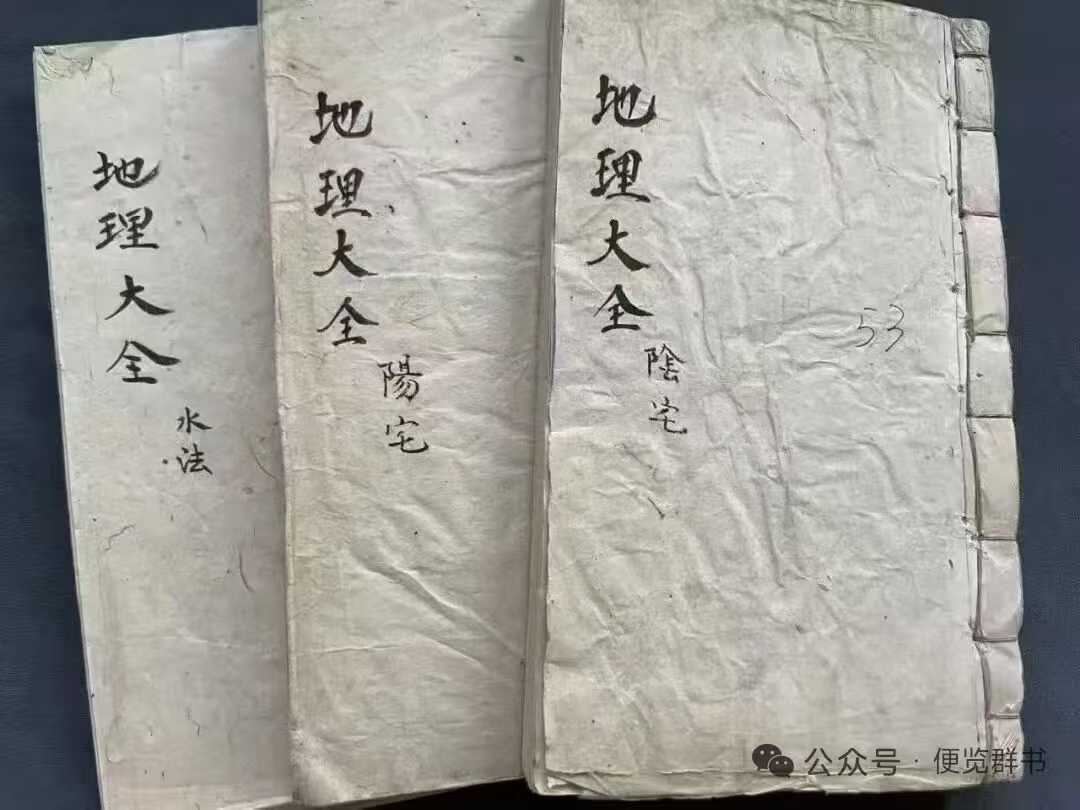 地理大全
陰宅
53
地理大全
陽宅
地理大全
水法
公众号·便览群书